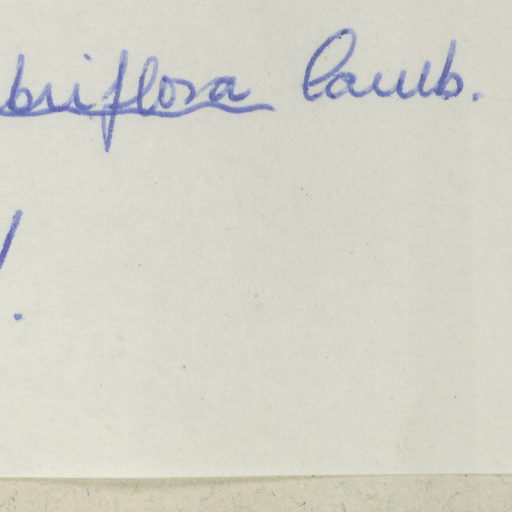 briflora Lamb.